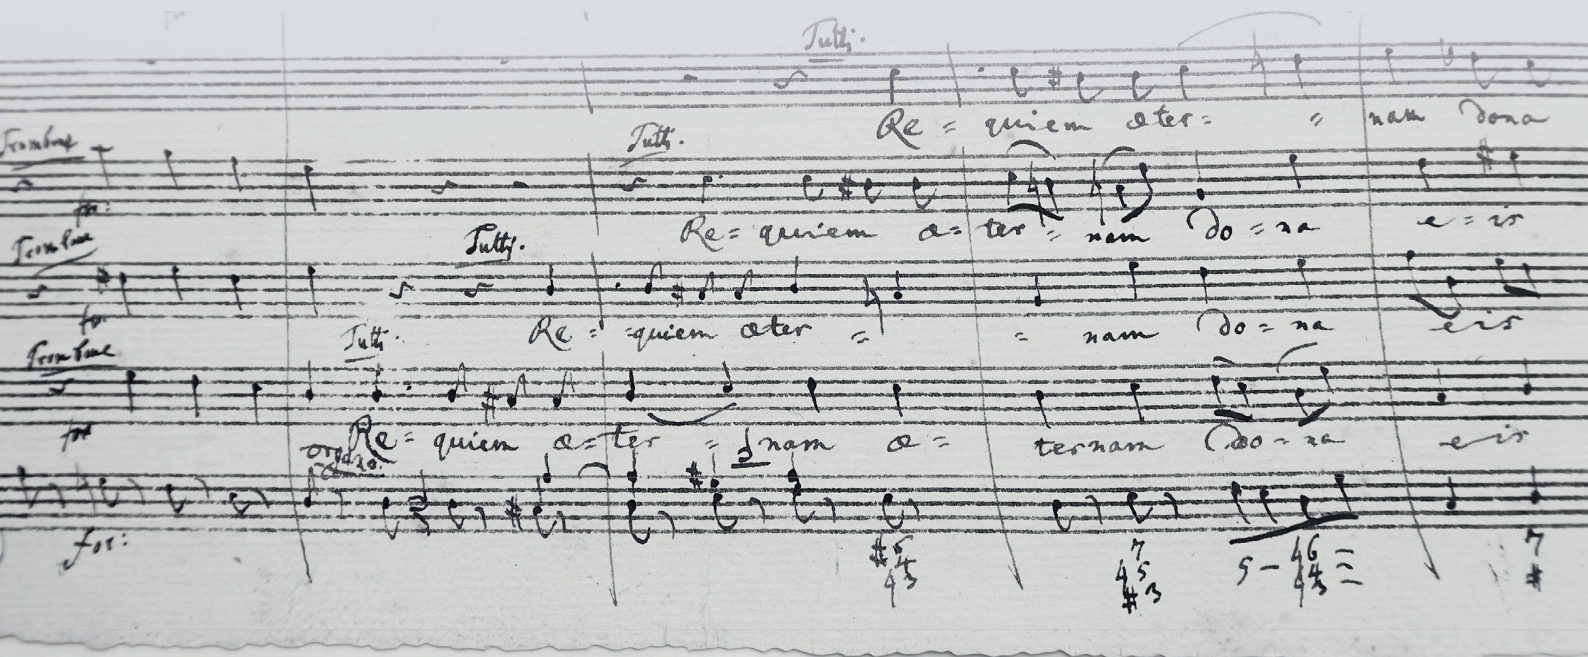 Tutti.
Re = quiem æter = = nam dona
Trombone
Tutti.
for:
Re = quiem æ = ter = nam do = na e = is
Trombone
Tutti.
for:
Re = = quiem æter = = nam do = na eis
Tutti.
Trombone
for
Re = quiem æ = ter = nam æ = ternam do = na eis
organo.
for:
#6 7 5 – 46 = 7
5 45 44 – #
43 #3 3 –